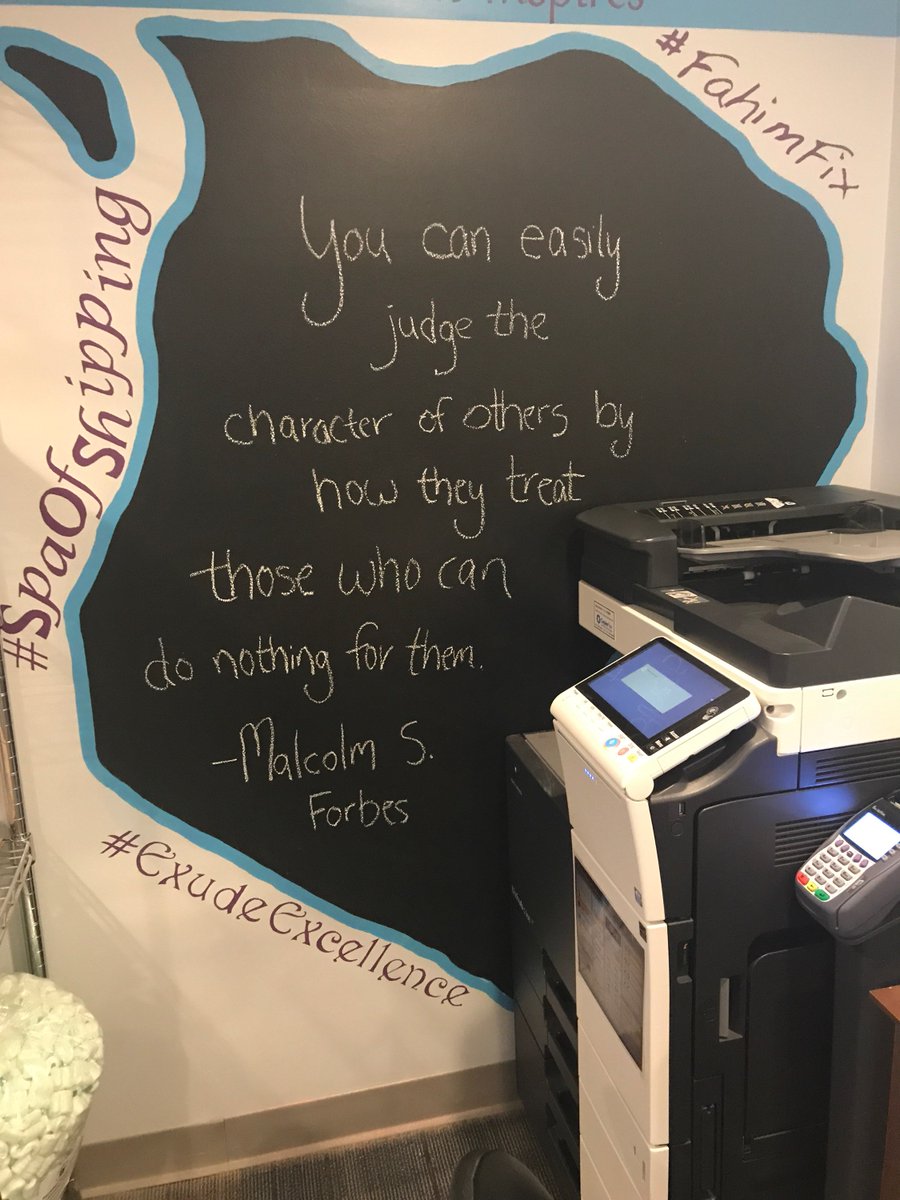 Inspires
#FahimFix
#SpaOfShipping
You can easily
judge the
character of others by
how they treat
those who can
do nothing for them.
-Malcolm S.
Forbes
#ExudeExcellence